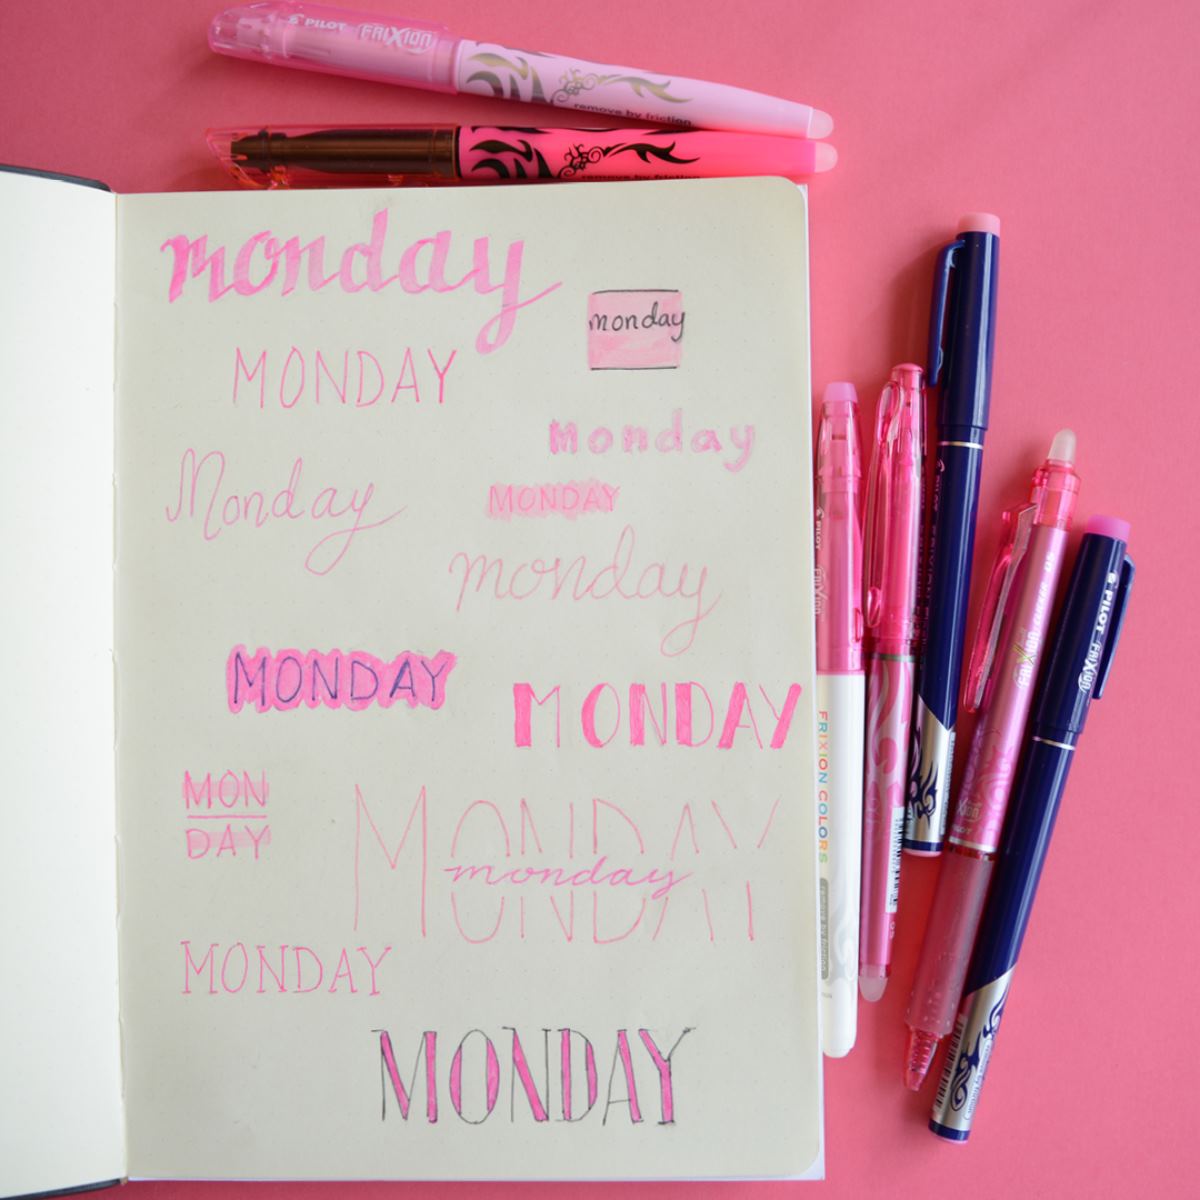 PILOT FRIXION
remove by friction
remove by friction
monday
monday
MONDAY
monday
Monday
MONDAY
monday
MONDAY
MONDAY
MON
DAY
MONDAY
monday
MONDAY
MONDAY
PILOT FRIXION
FRIXION COLORS
remove by friction
FRIXION CLICKER 05
PILOT
PILOT FRIXION
05